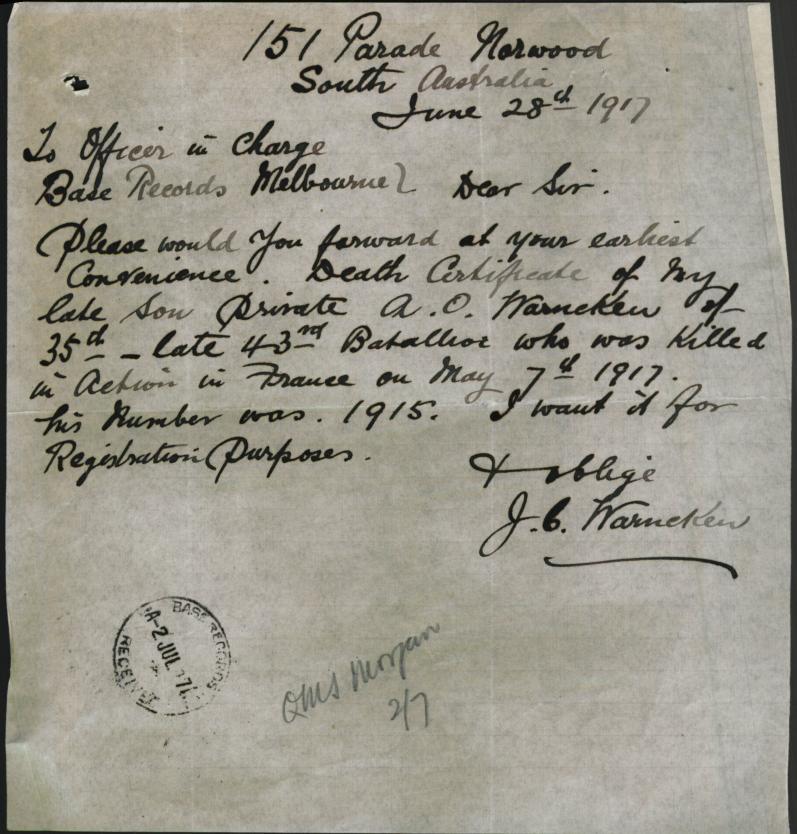 151 Parade Norwood
South Australia
June 28th 1917
To Officer in Charge
Base Records Melbourne } Dear Sir.
Please would You forward at your earliest
Convenience. Death Certificate of My
late Son Private A.O. Warncken of
35th – late 43rd Batallion who was Killed
in Action in France on May 7th 1917.
his Number was. 1915. I want it for
Registration Purposes.
& oblige
J.C. Warncken
BASE RECORDS
A-2 JUL 17
RECEIVED
QMS Morgan
2/7